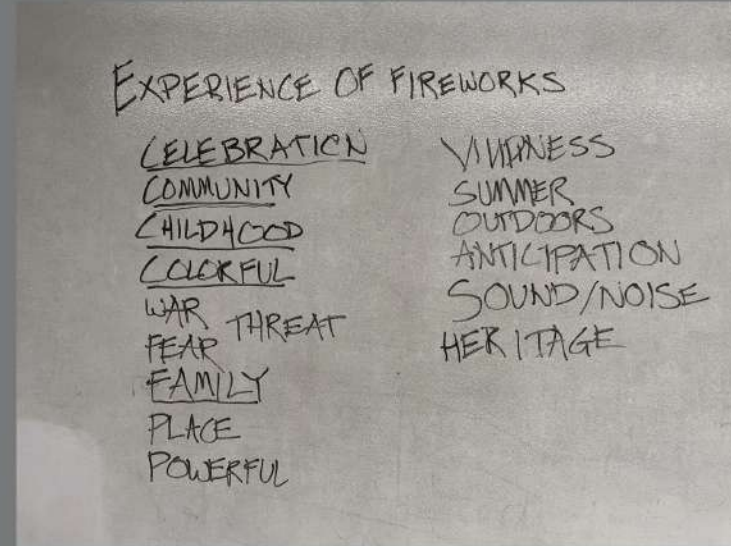 EXPERIENCE OF FIREWORKS
CELEBRATION
COMMUNITY
CHILDHOOD
COLORFUL
WAR
THREAT
FEAR
FAMILY
PLACE
POWERFUL
SUMMER
OUTDOORS
ANTICIPATION
SOUND/NOISE
HERITAGE